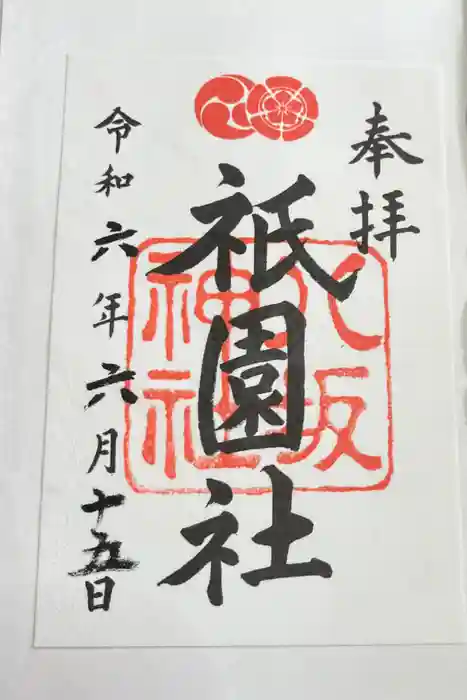 奉拝
祇園社
八坂
神社
令和六年六月十五日